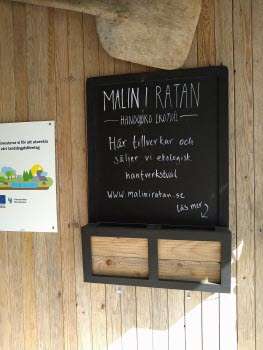 MALIN I RATAN
HANDGJORD EKOTVÅL
Här tillverkar och
säljer vi ekologisk
hantverkstvål
www.maliniratan.se
Läs mer
investerar vi för att utveckla
vårt landsbygdsföretag